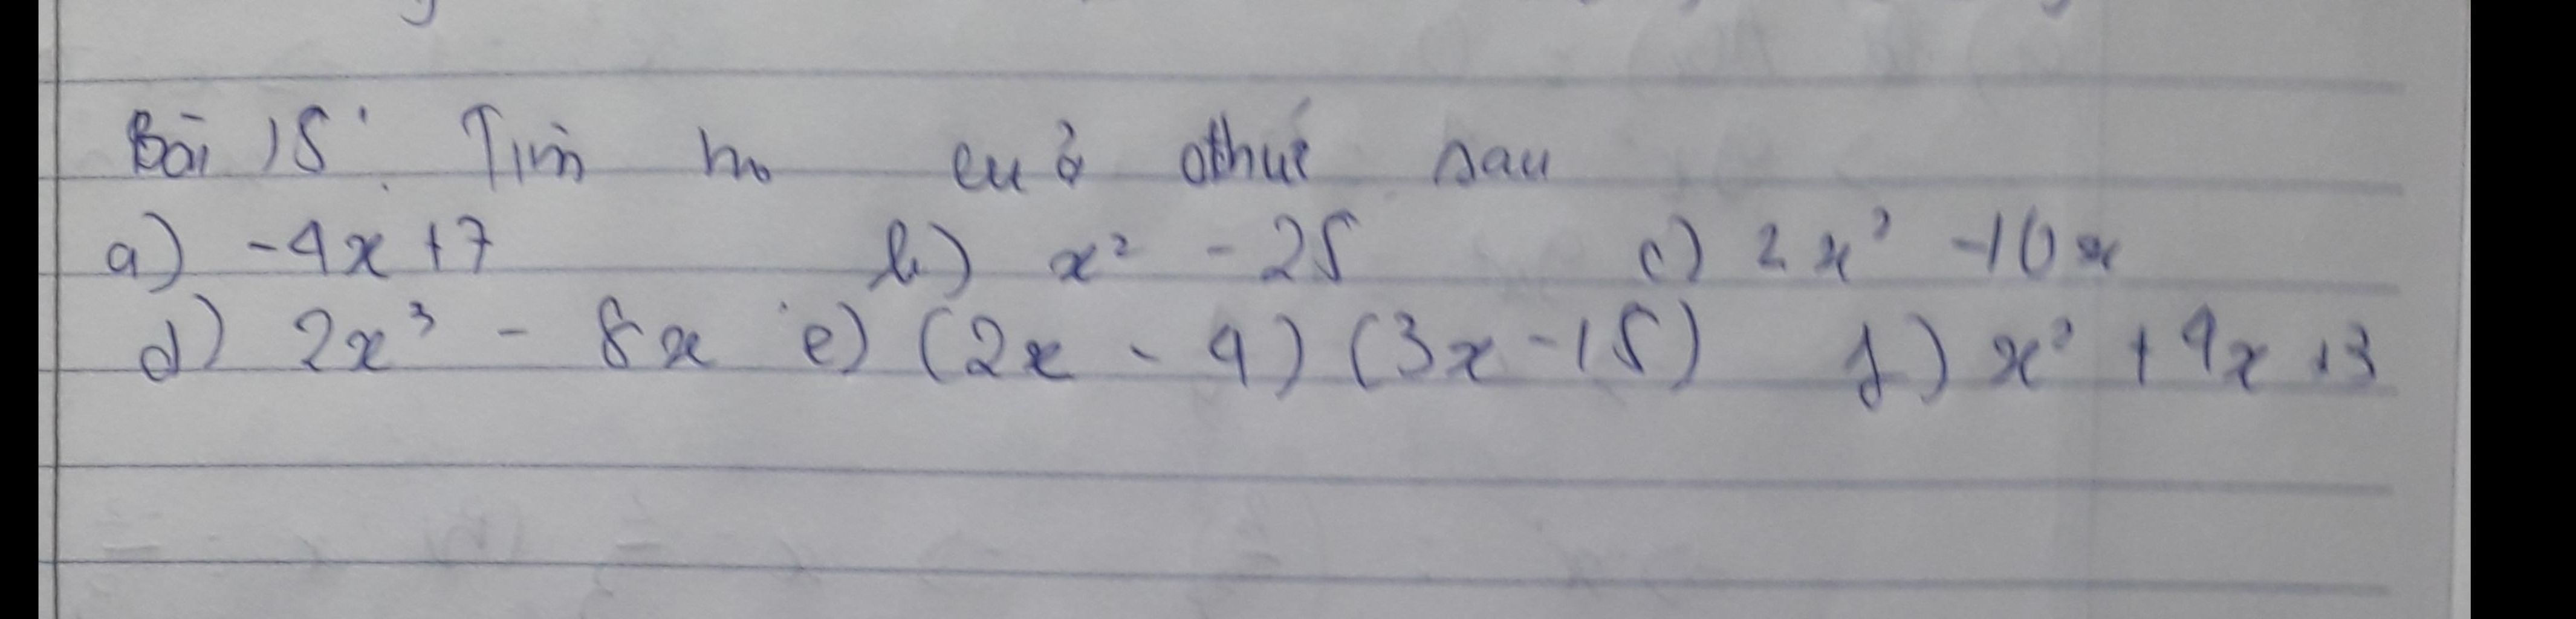 Bài 15: Tìm no của đthức sau
a) -4x +7 b) x² - 25 c) 2x² -10x
d) 2x³ - 8x e) (2x - 4) (3x -15) f) x² + 4x +3